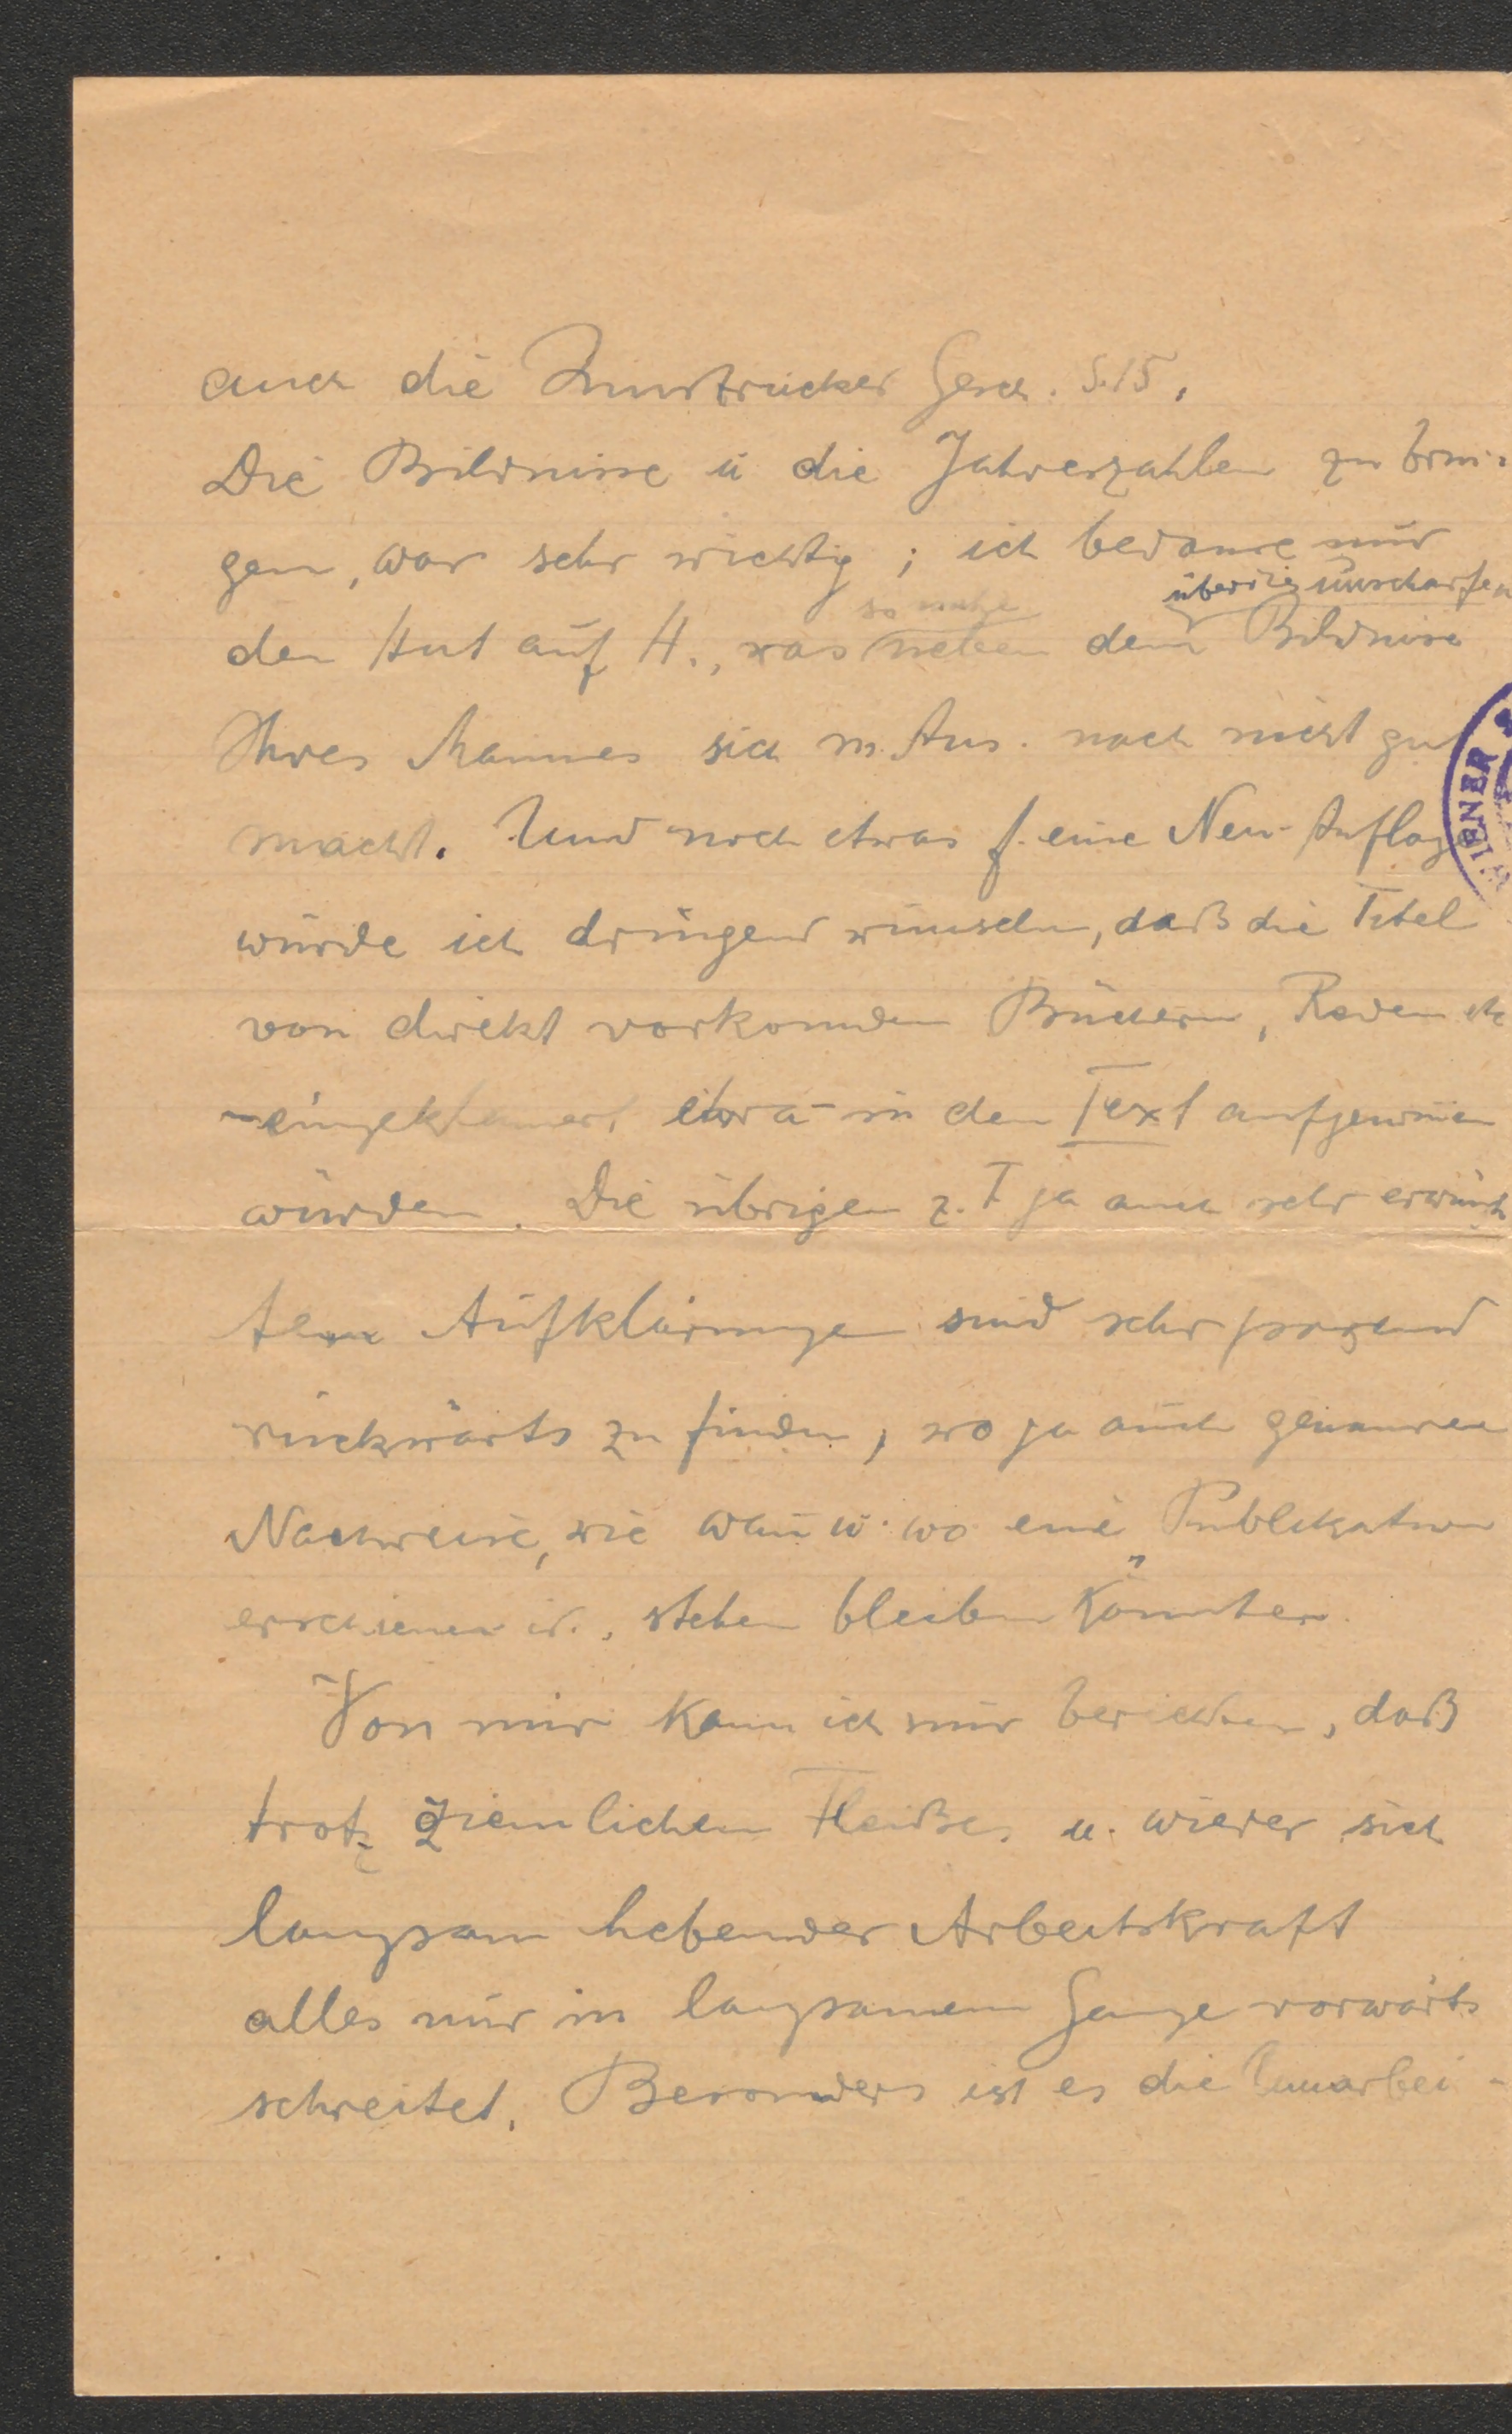 auch die Innsbrucker Gesch. S. 15.
Die Bildnisse u die Jahreszahlen zu brin-
gen, war sehr wichtig; ich bedaure nur
so nahe übrig unscharfen
den Hut auf H., was neben dem Bildnisse
Ihres Mannes sich m. Aus. nach nicht gut
macht. Und noch etwas f. eine Neu-Auflage
würde ich dringend wünschen, daß die Titel
von direkt vorkomnden Büchern, Reden etc
eingeklamert etwa in den Text aufgenomen
würden. Die übrigen z. T ja auch sehr erwünsch
ten Aufklärungen sind sehr passend
rückwärts zu finden, wo ja auch genauere
Nachweise, wie wann u. wo eine Publikation
erschienen ist, stehen bleiben könnten.
Von mir kann ich nur berichten, daß
trotz ziemlichen Fleißes u. wieder sich
langsam hebender Arbeitskraft
alles nur in langsamem Gange vorwärts
schreitet. Besonders ist es die Umarbei-
IRNER